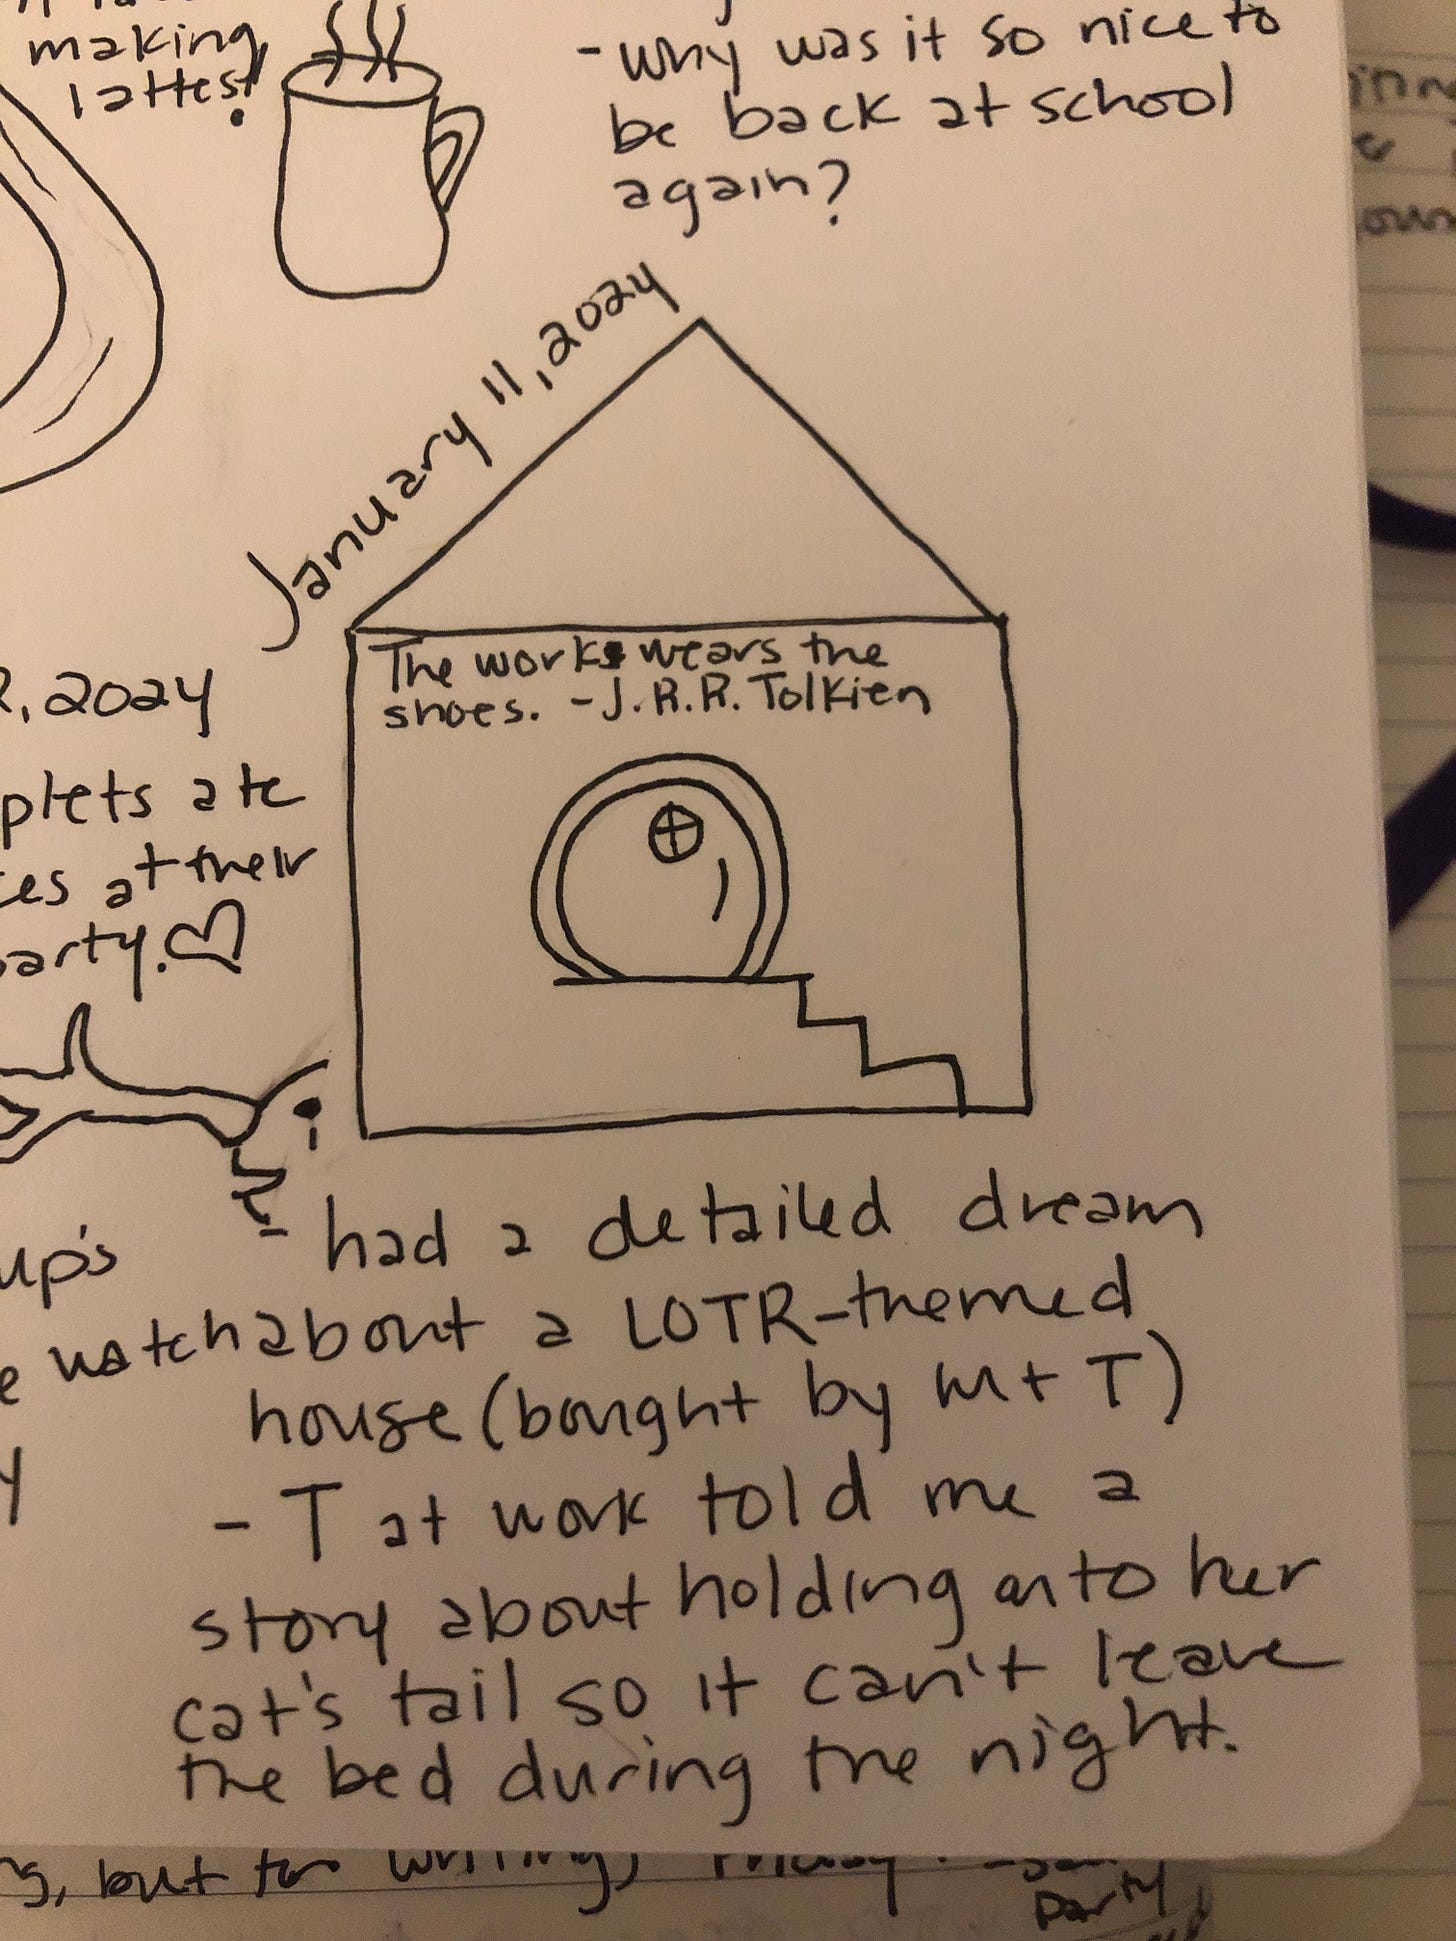 making
lattes!
- why was it so nice to
be back at school
again?
January 11, 2024
The work wears the
shoes. - J.R.R. Tolkien
, 2024
plets ate
es at their
party. ♡
up's
watch
- had a detailed dream
about a LOTR-themed
house (bought by M + T)
- T at work told me a
story about holding onto her
cat's tail so it can't leave
the bed during the night.
, but for writing,
party